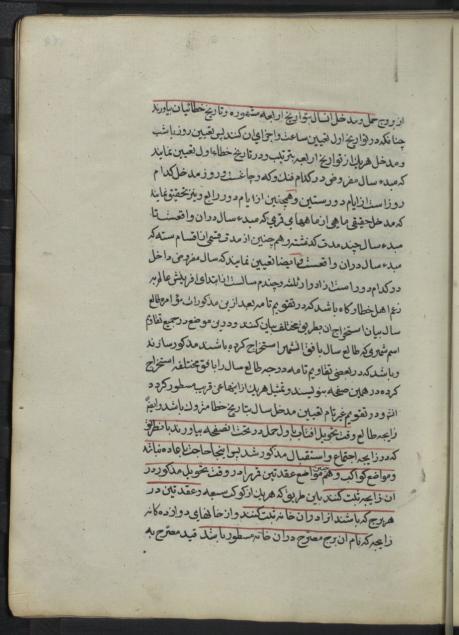 از برج حمل و مدخل آنسال بتواریخ اربعه مشهوره و تاریخ خطائیان بیاورند
چنانکه در تواریخ اول تعیین ساعت و اجزای آن کنند پس تعیین روز باشد
و مدخل هر یک از تواریخ اربعه بترتیب و در تاریخ خطاء اول تعیین نمایند
که مبدء سال مفروض در کدام فنک و که و چاغ است و روز مدخل کدام
روز است از ایام دور ستین و همچنین از ایام دور رابع و نیز تحقیق نمایند
که مدخل حقیقی ماهی از ماههای قمری که مبدء سال در آن واقعست تا
مبدء سال چند مدت گذشته و همچنین از مدت قسمی از اقسام سته که
مبدء سال در آن واقعست و ایضا تعیین نمایند که سال مفروض داخل
در کدام دور است از ادوار ثلثه و چندم سالست از ابتدای آفرینش عالم بر
زعم اهل خطا و گاه باشد که در تقویم تامه بعد از این مذکورات مؤامره طالع
سال بیان استخراج آن بطریق مختلف بیان کنند و درین موضع در جمیع تقاویم
اسم شهری که طالع سال بافق آنشهر استخراج کرده باشند مذکور سازند
و باشد که در بعضی تقاویم تامه درجه طالع سال را بافاق مختلفه استخراج
کرده در همین صفحه بنویسند و تمثیل هر یک از اینها عن قریب مسطور گردد
و در تقویم غیر تام تعیین مدخل سال بتاریخ خطا متروک باشد
زایجه طالع وقت تحویل آفتاب باول حمل در تحت آنصفحه بیاورند بآنطریق
که در زایجه اجتماع و استقبال مذکور شد پس اینجا حاجت باعاده نباشد
و مواضع کواکب و همچنین مواضع عقدتین قمر را در وقت تحویل مذکور در
آن زایجه ثبت کنند باین طریق که هر یک از کواکب سبعه و عقدتین در
هر برج که باشند از آن خانه ثبت کنند و از خانهای دوازده‌گانه
زایجه که نام آن برج مصرح در آن خانه مسطور باشد قید مصرح به